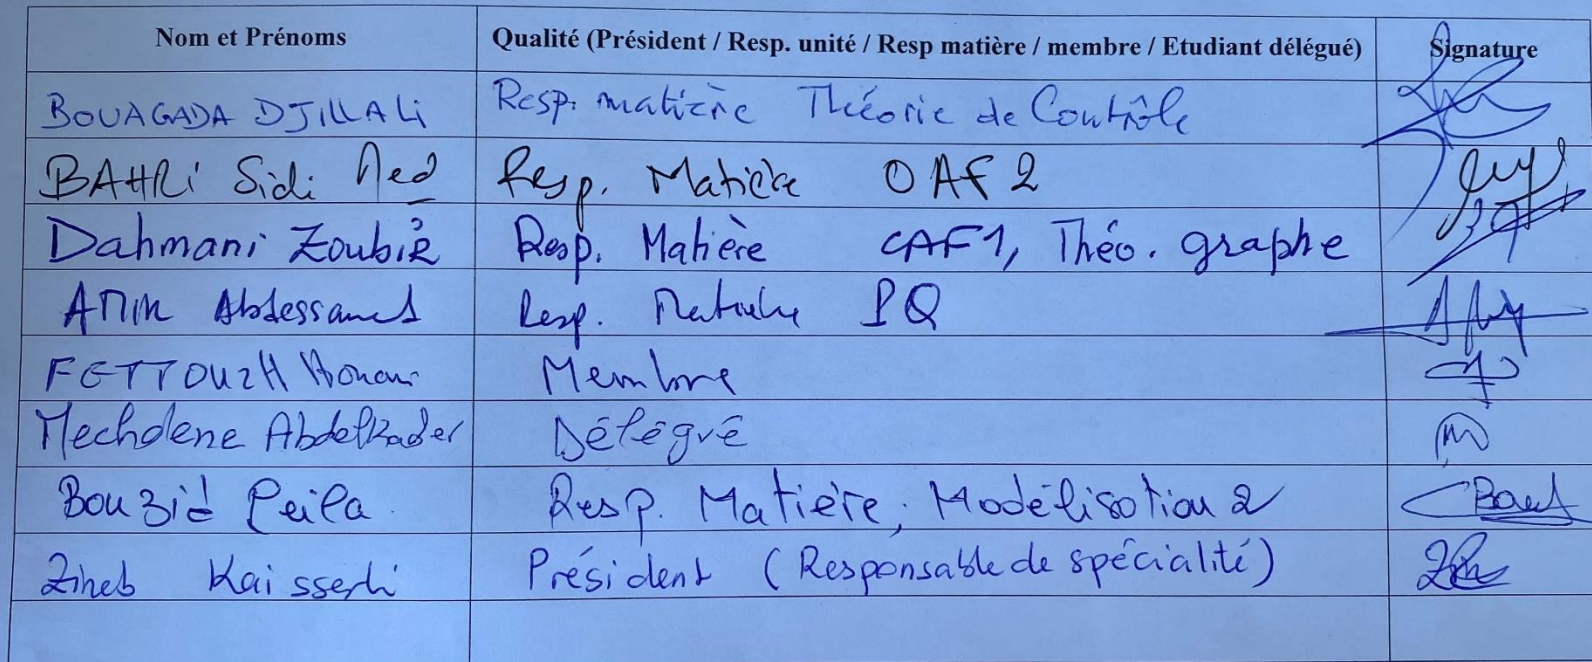 Nom et Prénoms Qualité (Président / Resp. unité / Resp matière / membre / Etudiant délégué) Signature
BOUAGADA DJILLALi Resp. matière Théorie de Contrôle
BAHRi Sidi Med Resp. Matière OAF 2
Dahmani Zoubir Resp. Matière CAF1, Théo. graphe
AMIR Abdessamad Resp. Matière PQ
FETTOUCH Membre
Mechdene Abdelkader Délégué
Bouzid Leila Resp. Matière, Modélisation 2
Zineb Kaisserli Président (Responsable de spécialité)